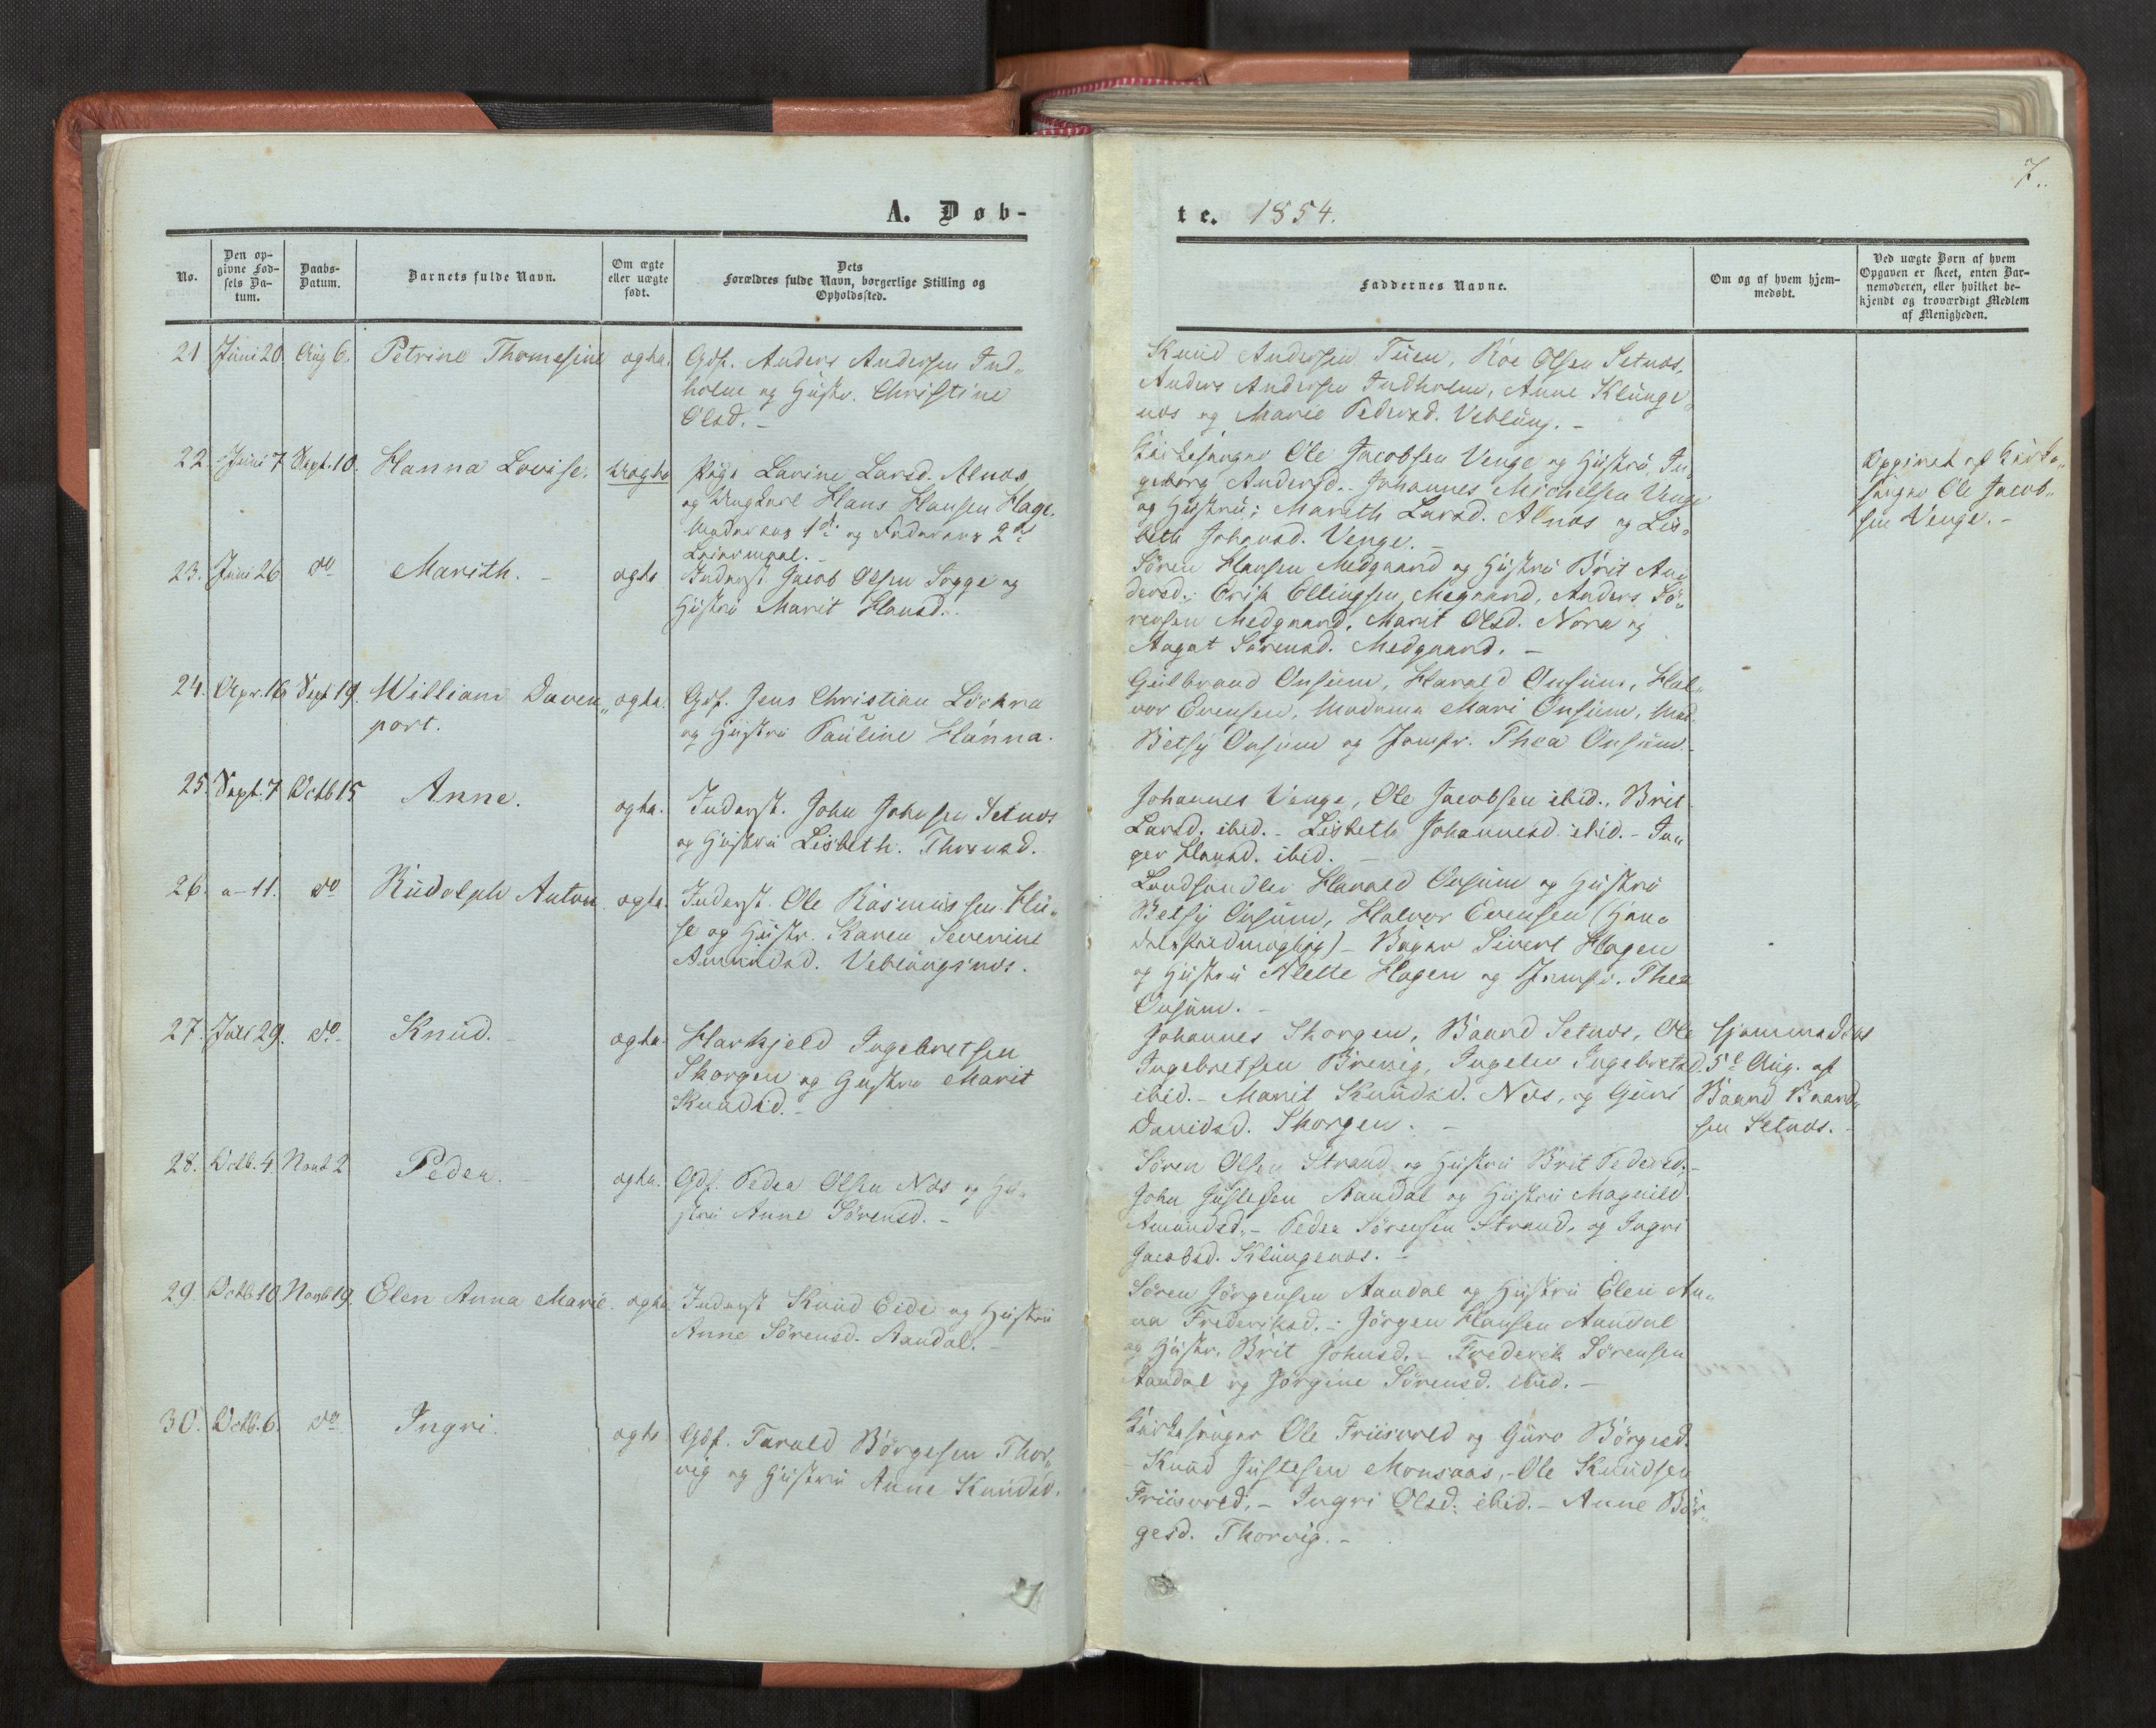 7.
A. Døb-
te. 1854.
No.
Den op-
givne Fød-
sels Da-
tum.
Daabs-
Datum.
Barnets fulde Navn.
Om ægte
eller uægte
født.
Dets
Forældres fulde Navn, borgerlige Stilling og
Opholdssted.
Faddernes Navne.
Om og af hvem hjem-
medøbt.
Ved uægte Børn af hvem
Opgaven er skeet, enten Bar-
nemoderen, eller hvilket be-
kjendt og troværdigt Medlem
af Menigheden.
21. Juni 20. Aug 6. Petrine Thomesine ægte. Gdf. Anders Andersen Ind-
holm og Hustr. Christine
Olsd. -
Knud Andersen Tuen, Roe Olsen Setnæs,
Anders Andersen Indholm, Anne Klunge-
næs og Marie Pedersd. Veblung. -
22. Juni 7 Sept. 10. Hanna Lovise. Uægte Pige Lavine Larsd. Alnæs
og Ungkarl Hans Hansen Hage.
Moderens 1ste og Faderens 2de
Leiermaal. -
Kirkesanger Ole Jacobsen Venge og Hustru, In-
geborg Andersd. Johannes Michelsen Venge
og Hustru; Marith Larsd. Alnæs og Lis-
beth Johansd. Venge. -
Opgivet af Kirke-
sanger Ole Jacob-
sen Venge. -
23. Juni 26 do Marith. - ægte Inderst Jacob Olsen Sogge og
Hustru Marit Hansd.
Søren Hansen Medgaard og Hustru Brit An-
dersd.; Erik Ellingsen Megaard, Anders Sø-
rensen Medgaard, Marit Olsd. Nora og
Aagot Sørensd. Medgaard. -
24. Apr. 16 Sept 19. William Daven-
port. ægte. Gdf. Jens Christian Lochra
og Hustru Pauline Hanna.
Gulbrand Onsum, Harald Onsum, Hal-
vor Evensen, Madame Mari Onsum, Mad.
Betsy Onsum og Jomfr. Thea Onsum.
25. Sept. 7 Octb 15 Anne. ægte. Inderst. John Johnsen Setnæs
og Hustru Lisbeth
Johannes Venge, Ole Jacobsen ibid., Brit
Larsd. ibid. - Lisbeth Johannesd. ibid. - In-
ger Hansd. ibid. -
26. a - 11. do Rudolph Anton ægte. Inderst. Ole Rasmussen Hu-
se og Hustr. Karen Severine
Amundsd. Veblungsnæs.
Landhandler Harald Onsum og Hustru
Betsy Onsum, Halvor Evensen (Han-
delsfuldmægtig) - Sivert Hagen
og Hustru Alette Hagen og Jomfr. Thea
Onsum. -
27. Juli 29. do Knud. ægte. Harkjeld Ingebretsen
Skorgen og Hustru Marit
Knudsd. -
Johannes Skorgen, Baard Setnæs, Ole
Ingebretsen Brevig, Ingelev Ingebretsd.
ibid. - Marit Knudsd. Næs, og Guri
Davidsd. Skorgen. -
Hjemmedøbt
5te Aug. af
Baard Baard-
sen Setnæs. -
28. Octb. 4 Novb 2 Peder. ægte. Gdf. Peder Olsen Næs og Hu-
stru Anne Sørensd. -
Søren Olsen Strand og Hustru Brit Pedersd. -
John Justesen Aandal og Hustru Magnild
Amundsd. - Peder Sørensen Strand, og Ingri
Jacobsd. Klungenæs. -
29. Octb 10 Novb 19. Elen Anna Marie. ægte Inderst Knud Eide og Hustru
Anne Sørensd. Aandal. -
Søren Jørgensen Aandal og Hustru Elen An-
na Frederiksd. - Jørgen Hansen Aandal
og Hustr. Brit Johnsd. - Frederik Sørensen
Aandal og Jørgine Sørensd. ibid. -
30. Octb. 6. do Ingri. ægte Gdf. Tarald Børgesen Thor-
vig og Hustru Anne Knudsd.
Kirkesanger Ole Friisvold og Guro Børgesd.
- Knud Justesen Monsaas, - Ole Knudsen
Friisvold. - Ingri Olsd. ibid. - Anne Bør-
gesd. Thorvig. -